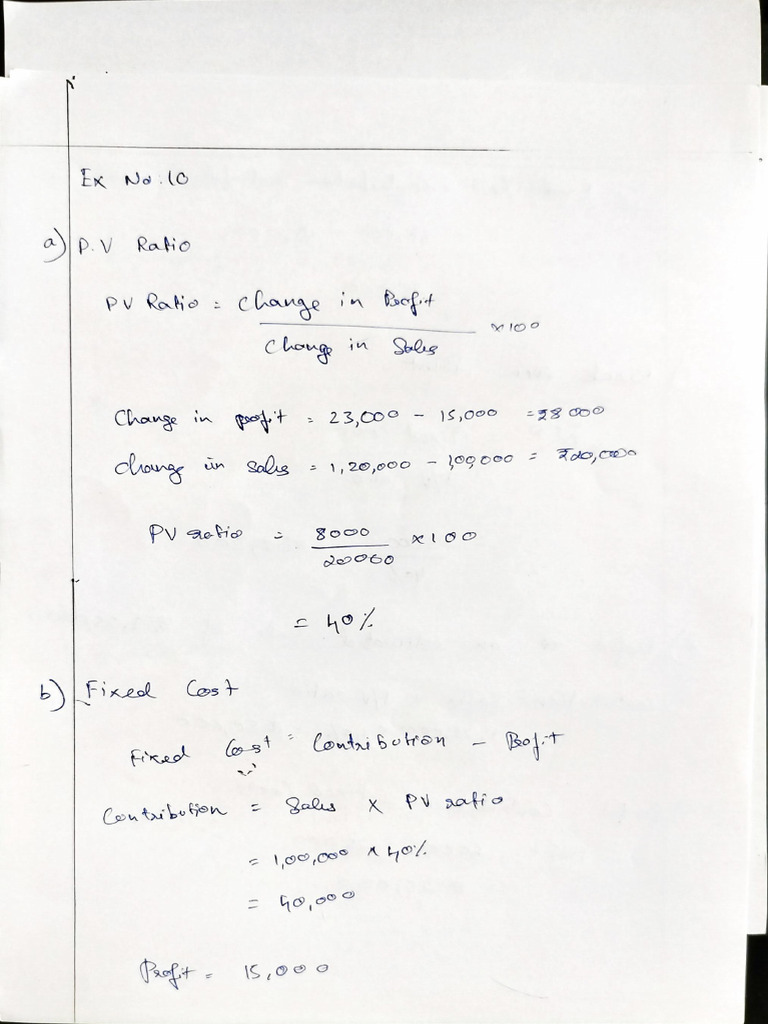 Ex No. 10
a) P.V Ratio
PV Ratio = Change in Profit
× 100
Change in Sales
Change in profit = 23,000 - 15,000 = ₹8000
Change in sales = 1,20,000 - 1,00,000 = ₹20,000
PV ratio = 8000 × 100
20000
= 40%
b) Fixed Cost
Fixed Cost = Contribution - Profit
Contribution = Sales × PV ratio
= 1,00,000 × 40%
= 40,000
Profit = 15,000